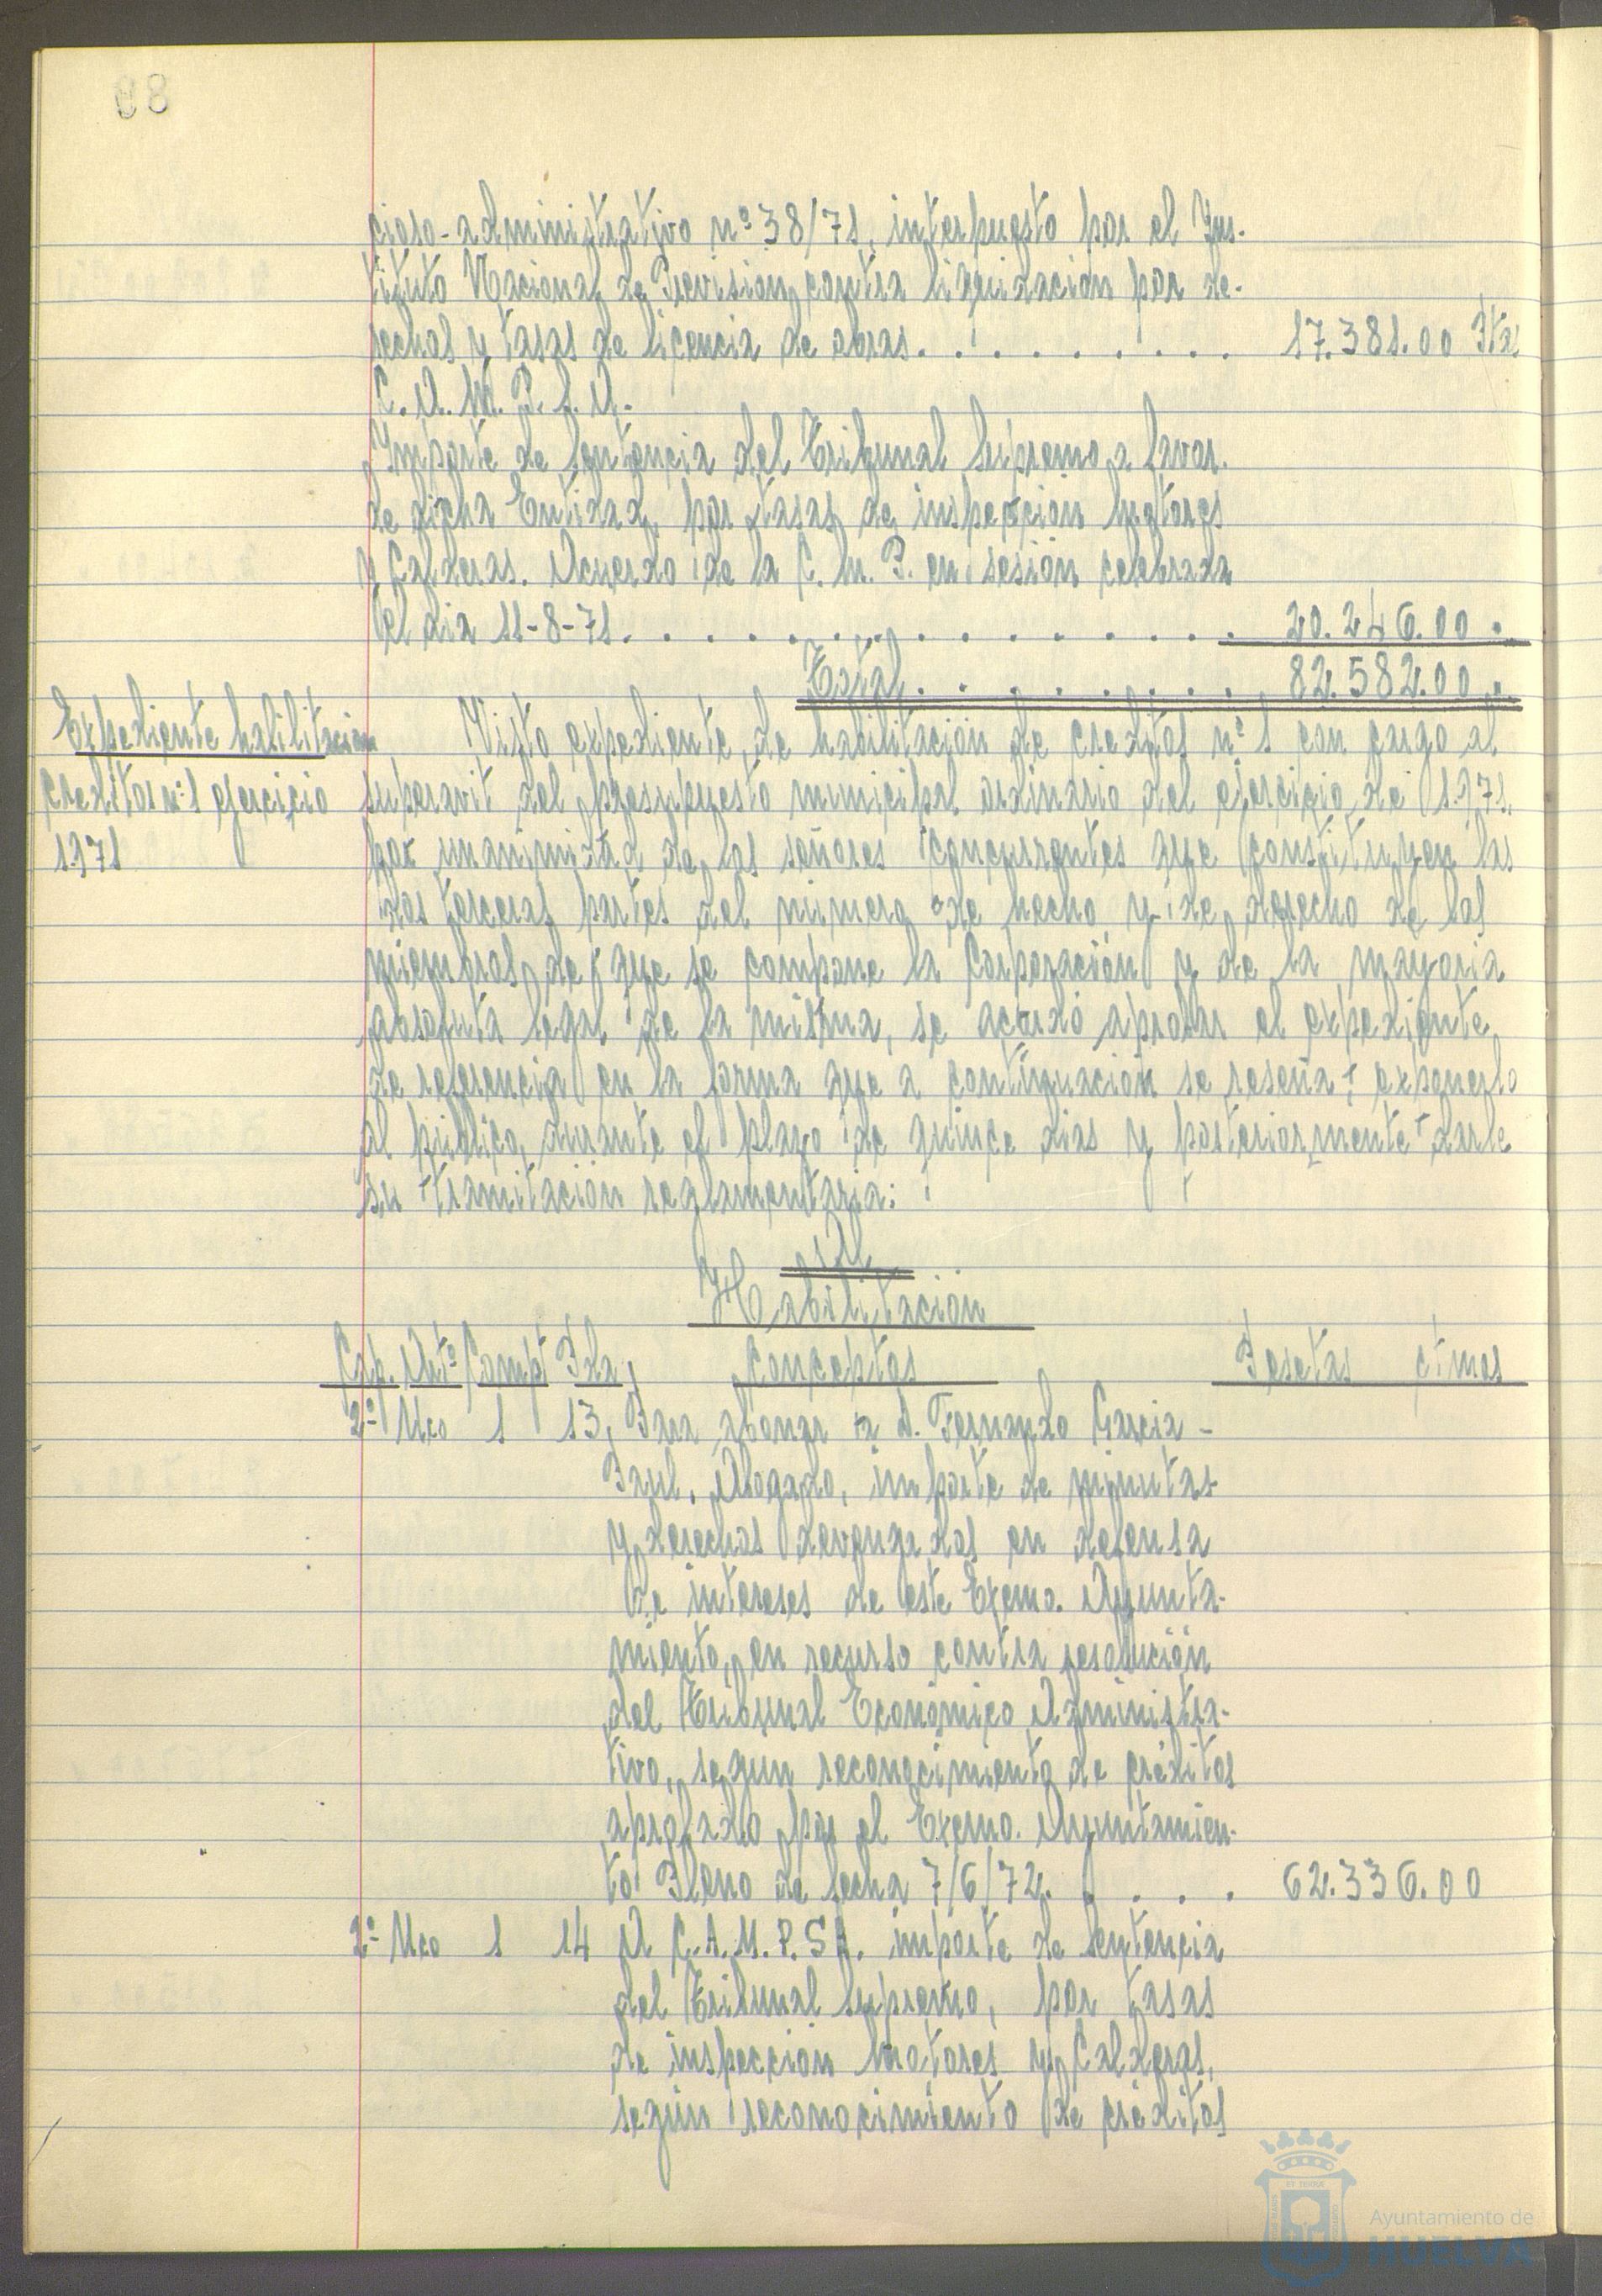 cioso-administrativo nº 38/71, interpuesto por el Ins-
tituto Nacional de Prevision, contra liquidación por de-
rechos y tasas de licencia de obras. . . . . . . . . 17.381.00 Ptas
C. A. M. P. S. A.
Importe de Sentencia del Tribunal Supremo, a favor
de dicha Entidad, por tasas de inspección Motores
y Calderas. Acuerdo de la C. M. P. en sesión celebrada
el dia 11-8-71. . . . . . . . . . . . . . . 20.246.00 .
Total . . . . . . . . . 82.582.00 .
Expediente habilitación
creditos nº 1 ejercicio
1971
Visto expediente, de habilitación de creditos nº 1 con cargo al
superavit del presupuesto municipal ordinario del ejercicio de 1.971,
por unanimidad de los señores concurrentes que constituyen las
dos terceras partes del número de hecho y de derecho de los
miembros de que se compone la Corporación y de la mayoria
absoluta legal de la misma, se acordó aprobar el expediente
de referencia en la forma que a continuación se reseña; exponerlo
al público, durante el plazo de quince dias y posteriormente darle
su tramitación reglamentaria:
Habilitación
Cap. Artº Compt Pda, Conceptos Pesetas ctmos
2º Uco 1 13, Para abonar a D. Fernando Garcia -
Paul, Abogado, importe de minutas
y derechos devengados en defensa
de intereses de este Excmo. Ayunta-
miento, en recurso contra resolución
del Tribunal Económico Administra-
tivo, segun reconocimiento de créditos
aprobado por el Excmo. Ayuntamien-
to Pleno de fecha 7/6/72. . . . . 62.336.00
2º Uco 1 14 A C.A.M.P.S.A. importe de Sentencia
del Tribunal Supremo, por tasas
de inspección Motores y Calderas,
segun reconocimiento de créditos
Ayuntamiento de
HUELVA